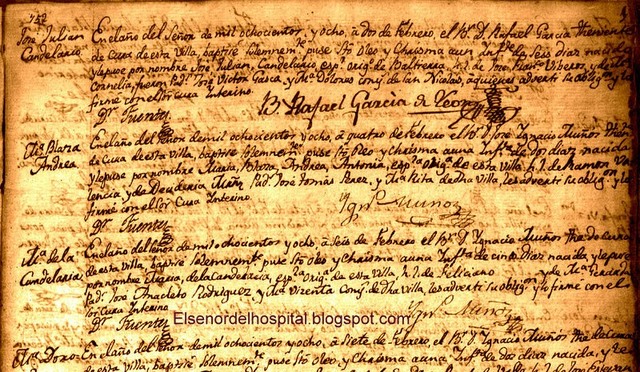 Jose Julian
Candelario
En el año del Señor de mil ochocientos y ocho, a dos de Febrero, el B.r D. Rafael Garcia Theniente
de Cura de esta villa, baptisé solemnem.te puse S.to oleo y Chrisma a un Inf.te de seis dias nacido
y le puse por nombre Jose Julian, Candelario, esp.l orig.o de
Cornelia, fueron Pad.s Jose Victor Garcia, y M.a Dolores conj.s de San Nicolas, aquienes adverti su oblig.n y lo
firmé con el Sor Cura Interino.
Fuentes
B. Rafael Garcia de Leon
M.a Blaza
Andrea
En el año del Señor de mil ochocientos y ocho, a quatro de Febrero el B.r D. Jose Ignacio Muñoz The
de Cura de esta villa, baptisé solemnem.te puse S.to Oleo y Chrisma a una Inf.ta de dos dias nacida
y le puse por nombre Maria, Blaza, Andrea, Antonia, esp.a orig.a de esta villa, h. l. de Ramon
lencia, y de Pad.s José Tomas Perez, y M.a Rita de dha Villa, les adverti su oblig.n y lo
firmé con el Sor Cura Interino.
Fuentes
Ign.o Muñoz
M.a de la
Candelaria
En el año del Señor de mil ochocientos y ocho, a seis de Febrero el B.r D. Ignacio Muñoz the de Cura
de esta villa, baptisé solemnem.te puse S.to oleo y chrisma a una Inf.ta de cinco dias nacida y le puse
por nombre Maria, de la Candelaria, esp.a orig.a de esta villa, h. l. de Feliciano y de M.a
Pad.s Jose Anacleto Rodriguez y M.a Vizenta Conj.s de dha Villa, les adverti su oblig.n y lo firmé con el
Cura Interino.
Fuentes
Ign.o Muñoz
Elsenordelhospital.blogspot.com
En el año del Señor de mil ochocientos y ocho, a siete de Febrero, el B.r D. Ignacio Muñoz the de Cura
de esta villa, baptisé solemnem.te puse S.to oleo, y Chrisma a una Inf.ta de dos dias nacida, y le